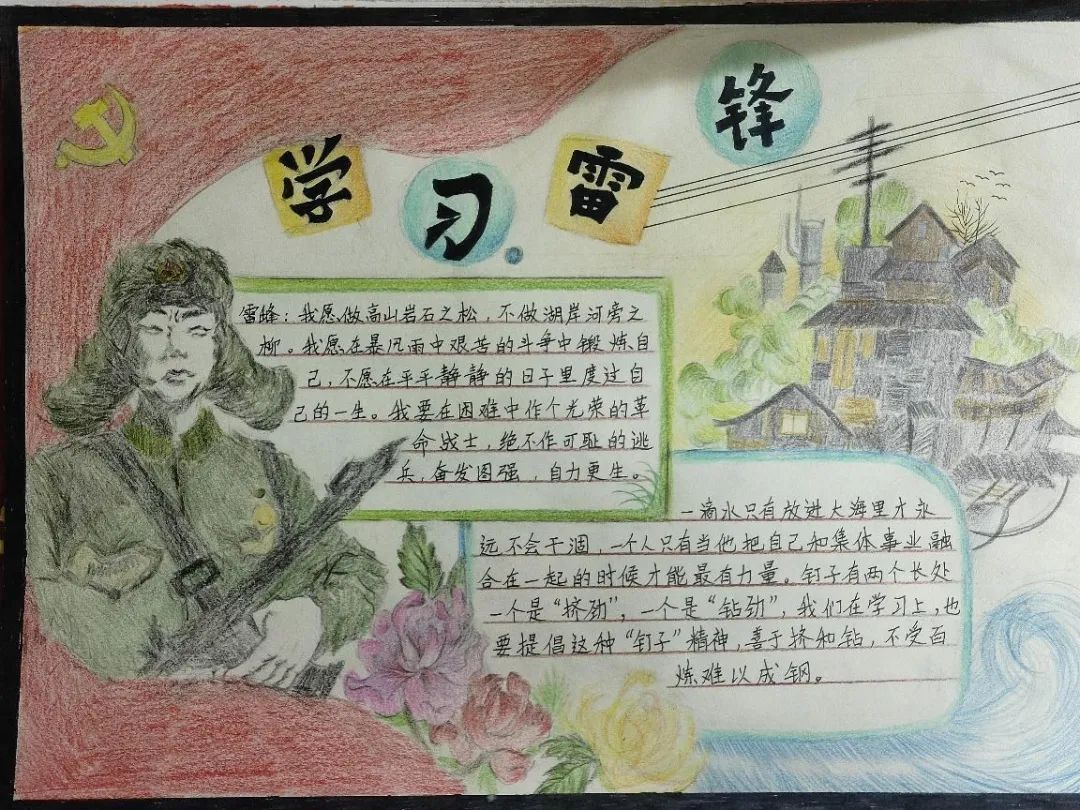 学习雷锋
雷锋：我愿做高山岩石之松，不做湖岸河旁之
柳。我愿在暴风雨中艰苦的斗争中锻炼自
己，不愿在平平静静的日子里度过自
己的一生。我要在困难中作个光荣的革
命战士，绝不作可耻的逃
兵，奋发图强，自力更生。
一滴水只有放进大海里才永
远不会干涸，一个人只有当他把自己和集体事业融
合在一起的时候才能最有力量。钉子有两个长处
一个是“挤劲”，一个是“钻劲”，我们在学习上，也
要提倡这种“钉子”精神，善于挤和钻，不受百
炼难以成钢。